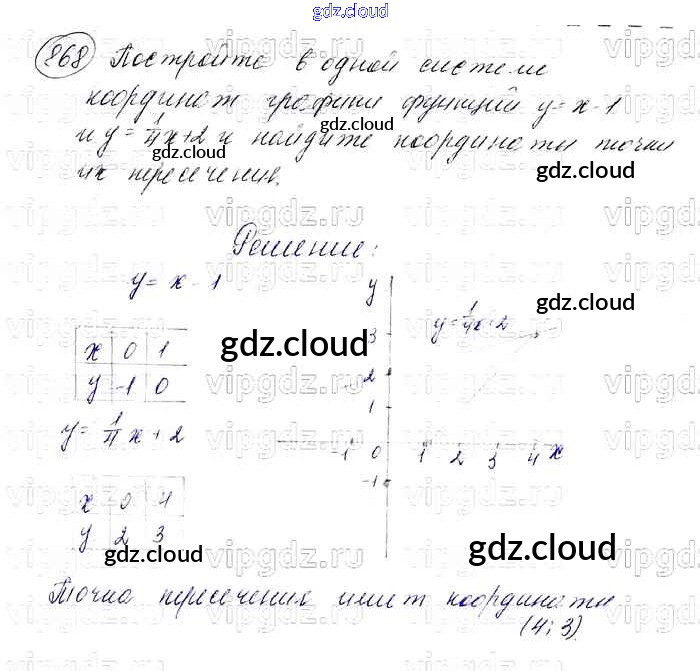 gdz.cloud
gdz.cloud
868 Постройте в одной системе
координат графики функций y = x - 1
и y = 1/4 x + 2 и найдите координаты точки
их пересечения.
gdz.cloud
gdz.cloud
Решение:
y = x - 1
y
y = 1/4 x + 2
gdz.cloud
gdz.cloud
x 0 1
y -1 0
3
2
1
y = 1/4 x + 2
-1 0 1 2 3 4 x
-1
x 0 4
y 2 3
gdz.cloud
gdz.cloud
Точка пересечения имеет координаты
(4; 3)
gdz.cloud
vipgdz.ru